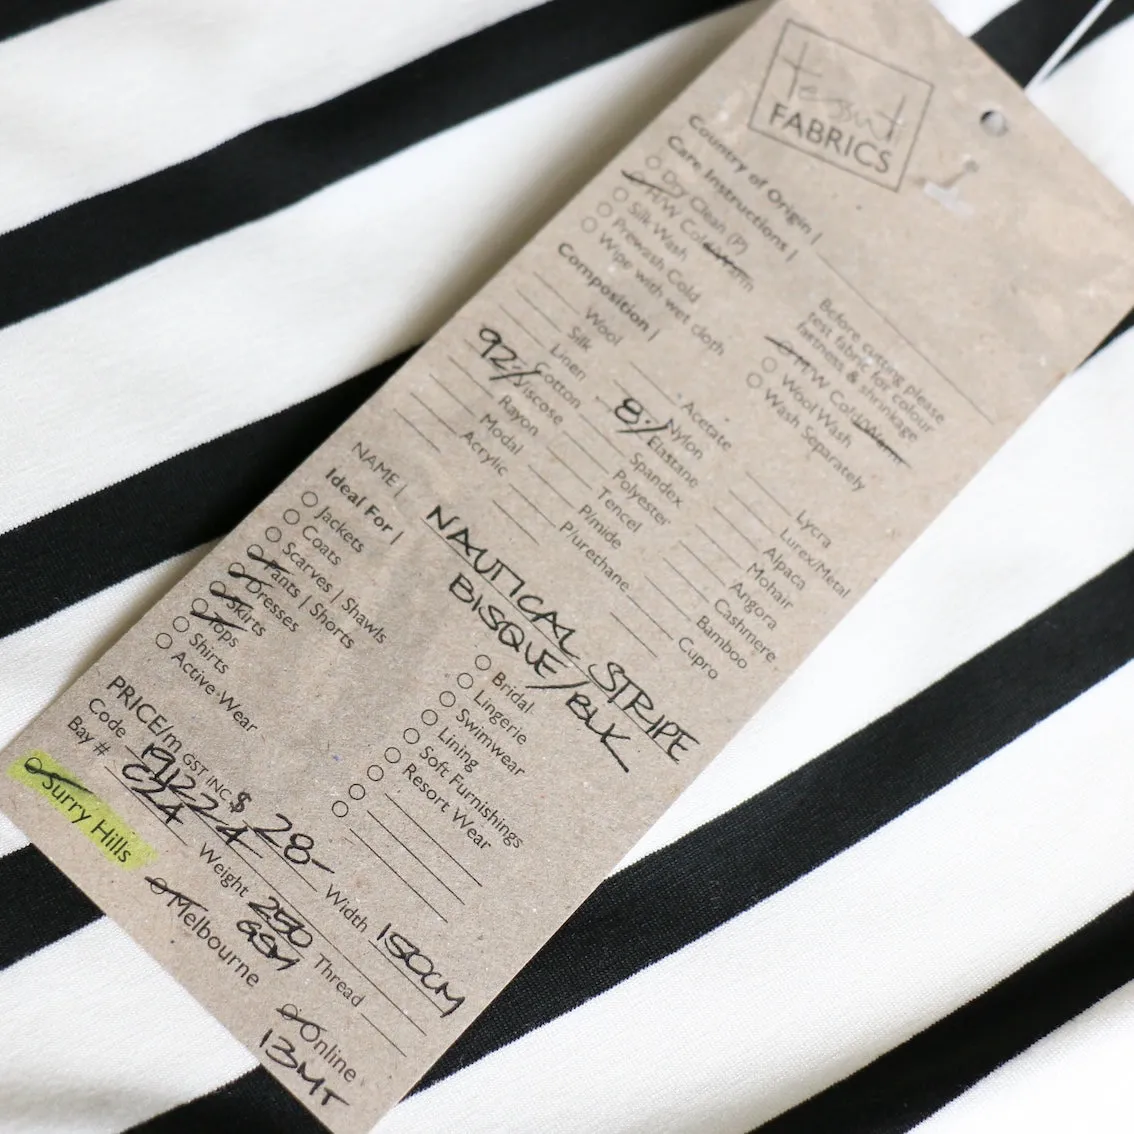 tessuti
FABRICS
Country of Origin |
Care Instructions |
Dry Clean (P)
H/W Cold/Warm
Silk Wash
Prewash Cold
Wipe with wet cloth
Before cutting please
test fabric for colour
fastness & shrinkage
M/W Cold/Warm
Wool Wash
Wash Separately
Composition |
Wool
Silk
Linen
Cotton
92% Viscose
Rayon
Modal
Acrylic
Acetate
Nylon
8% Elastane
Spandex
Polyester
Tencel
P/mide
P/urethane
Lycra
Lurex/Metal
Alpaca
Mohair
Angora
Cashmere
Bamboo
Cupro
NAME | NAUTICAL STRIPE
BISQUE/BLK
Ideal For |
Jackets
Coats
Scarves | Shawls
Pants | Shorts
Dresses
Skirts
Tops
Shirts
Active Wear
Bridal
Lingerie
Swimwear
Lining
Soft Furnishings
Resort Wear
PRICE/m GST INC $ 28- Width 150CM
Code 191224 Weight 250 GSM Thread
Bay # C24
Surry Hills
Melbourne
Online
13MT